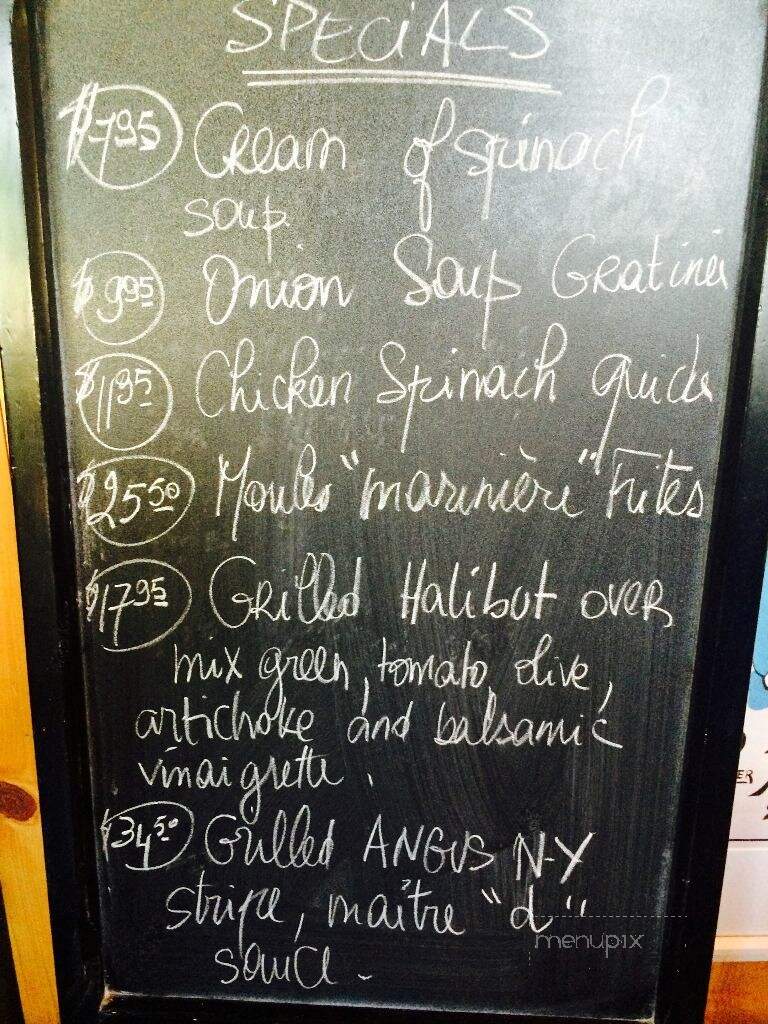 SPECIALS
$7.95 Cream of spinach
soup.
$9.95 Onion Soup Gratinée
$11.95 Chicken Spinach quiche
$25.50 Moules "marinière" Frites
$17.95 Grilled Halibut over
mix green, tomato, olive,
artichoke and balsamic
vinaigrette.
$34.50 Grilled ANGUS N-Y
stripe, maître "d"
sauce.
menupix